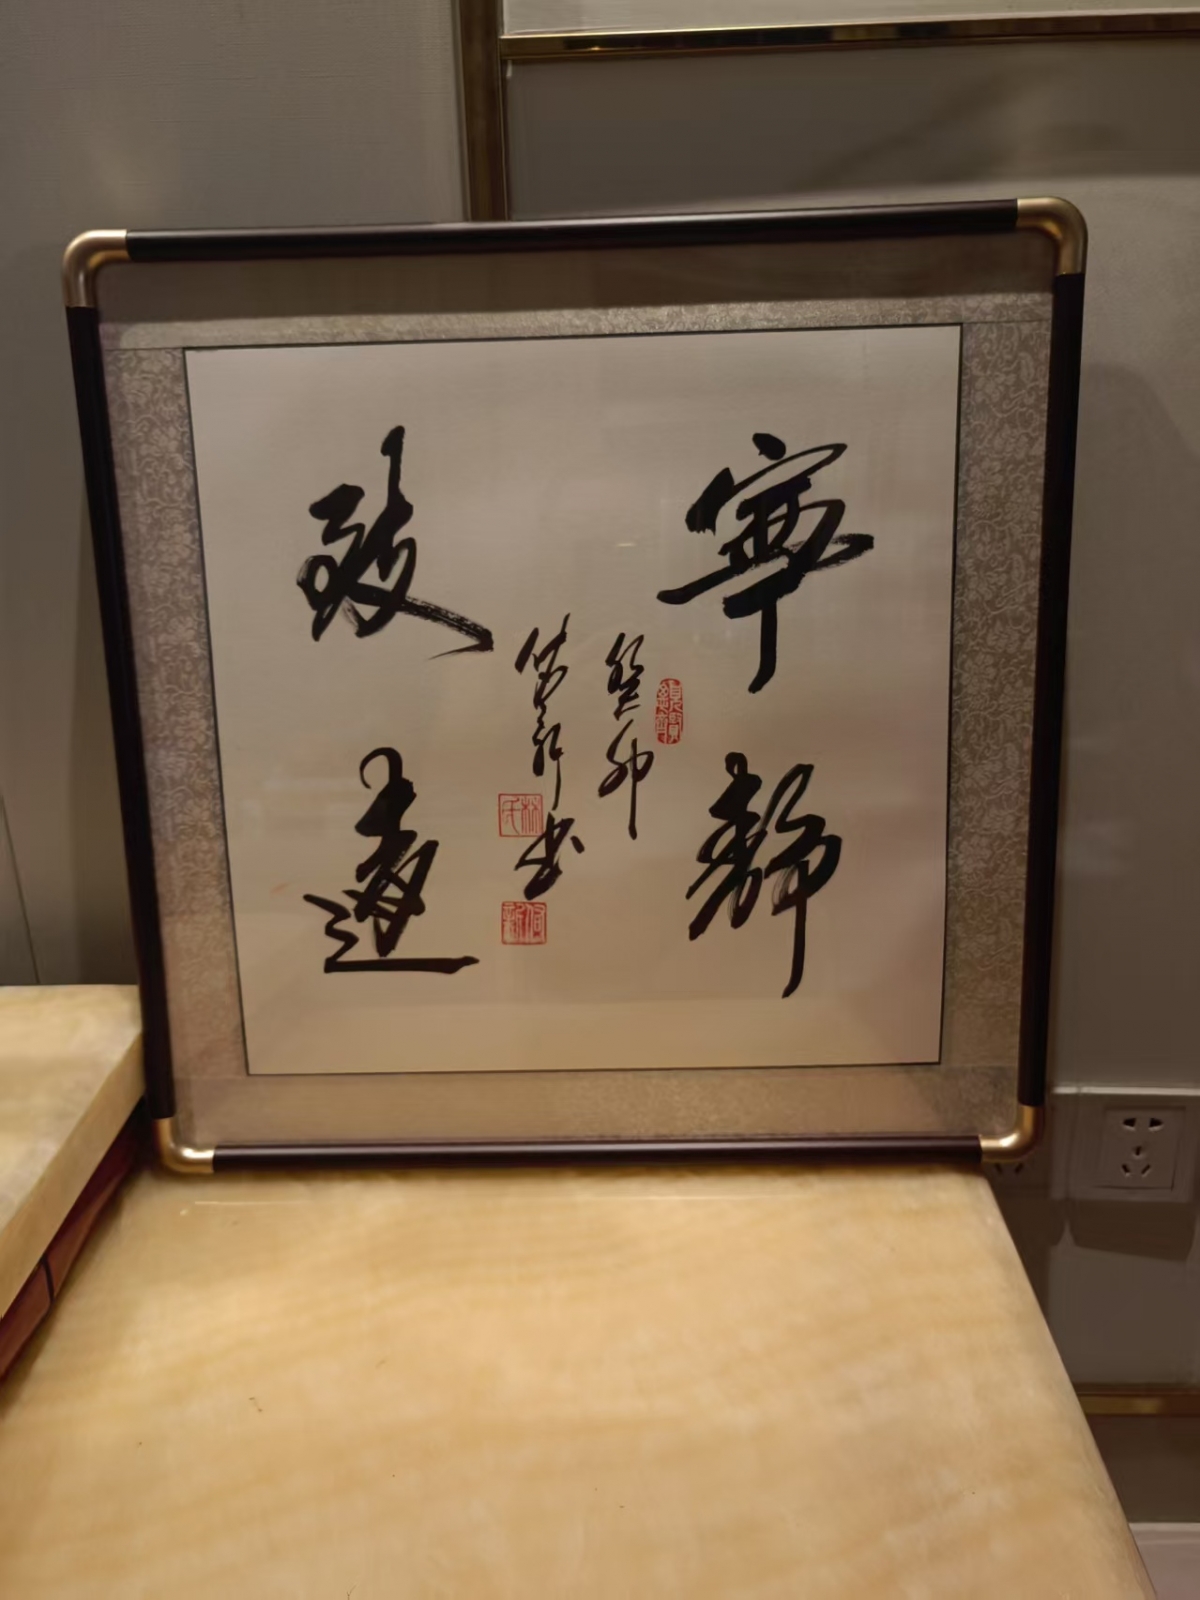 寧靜
致遠
癸卯
書